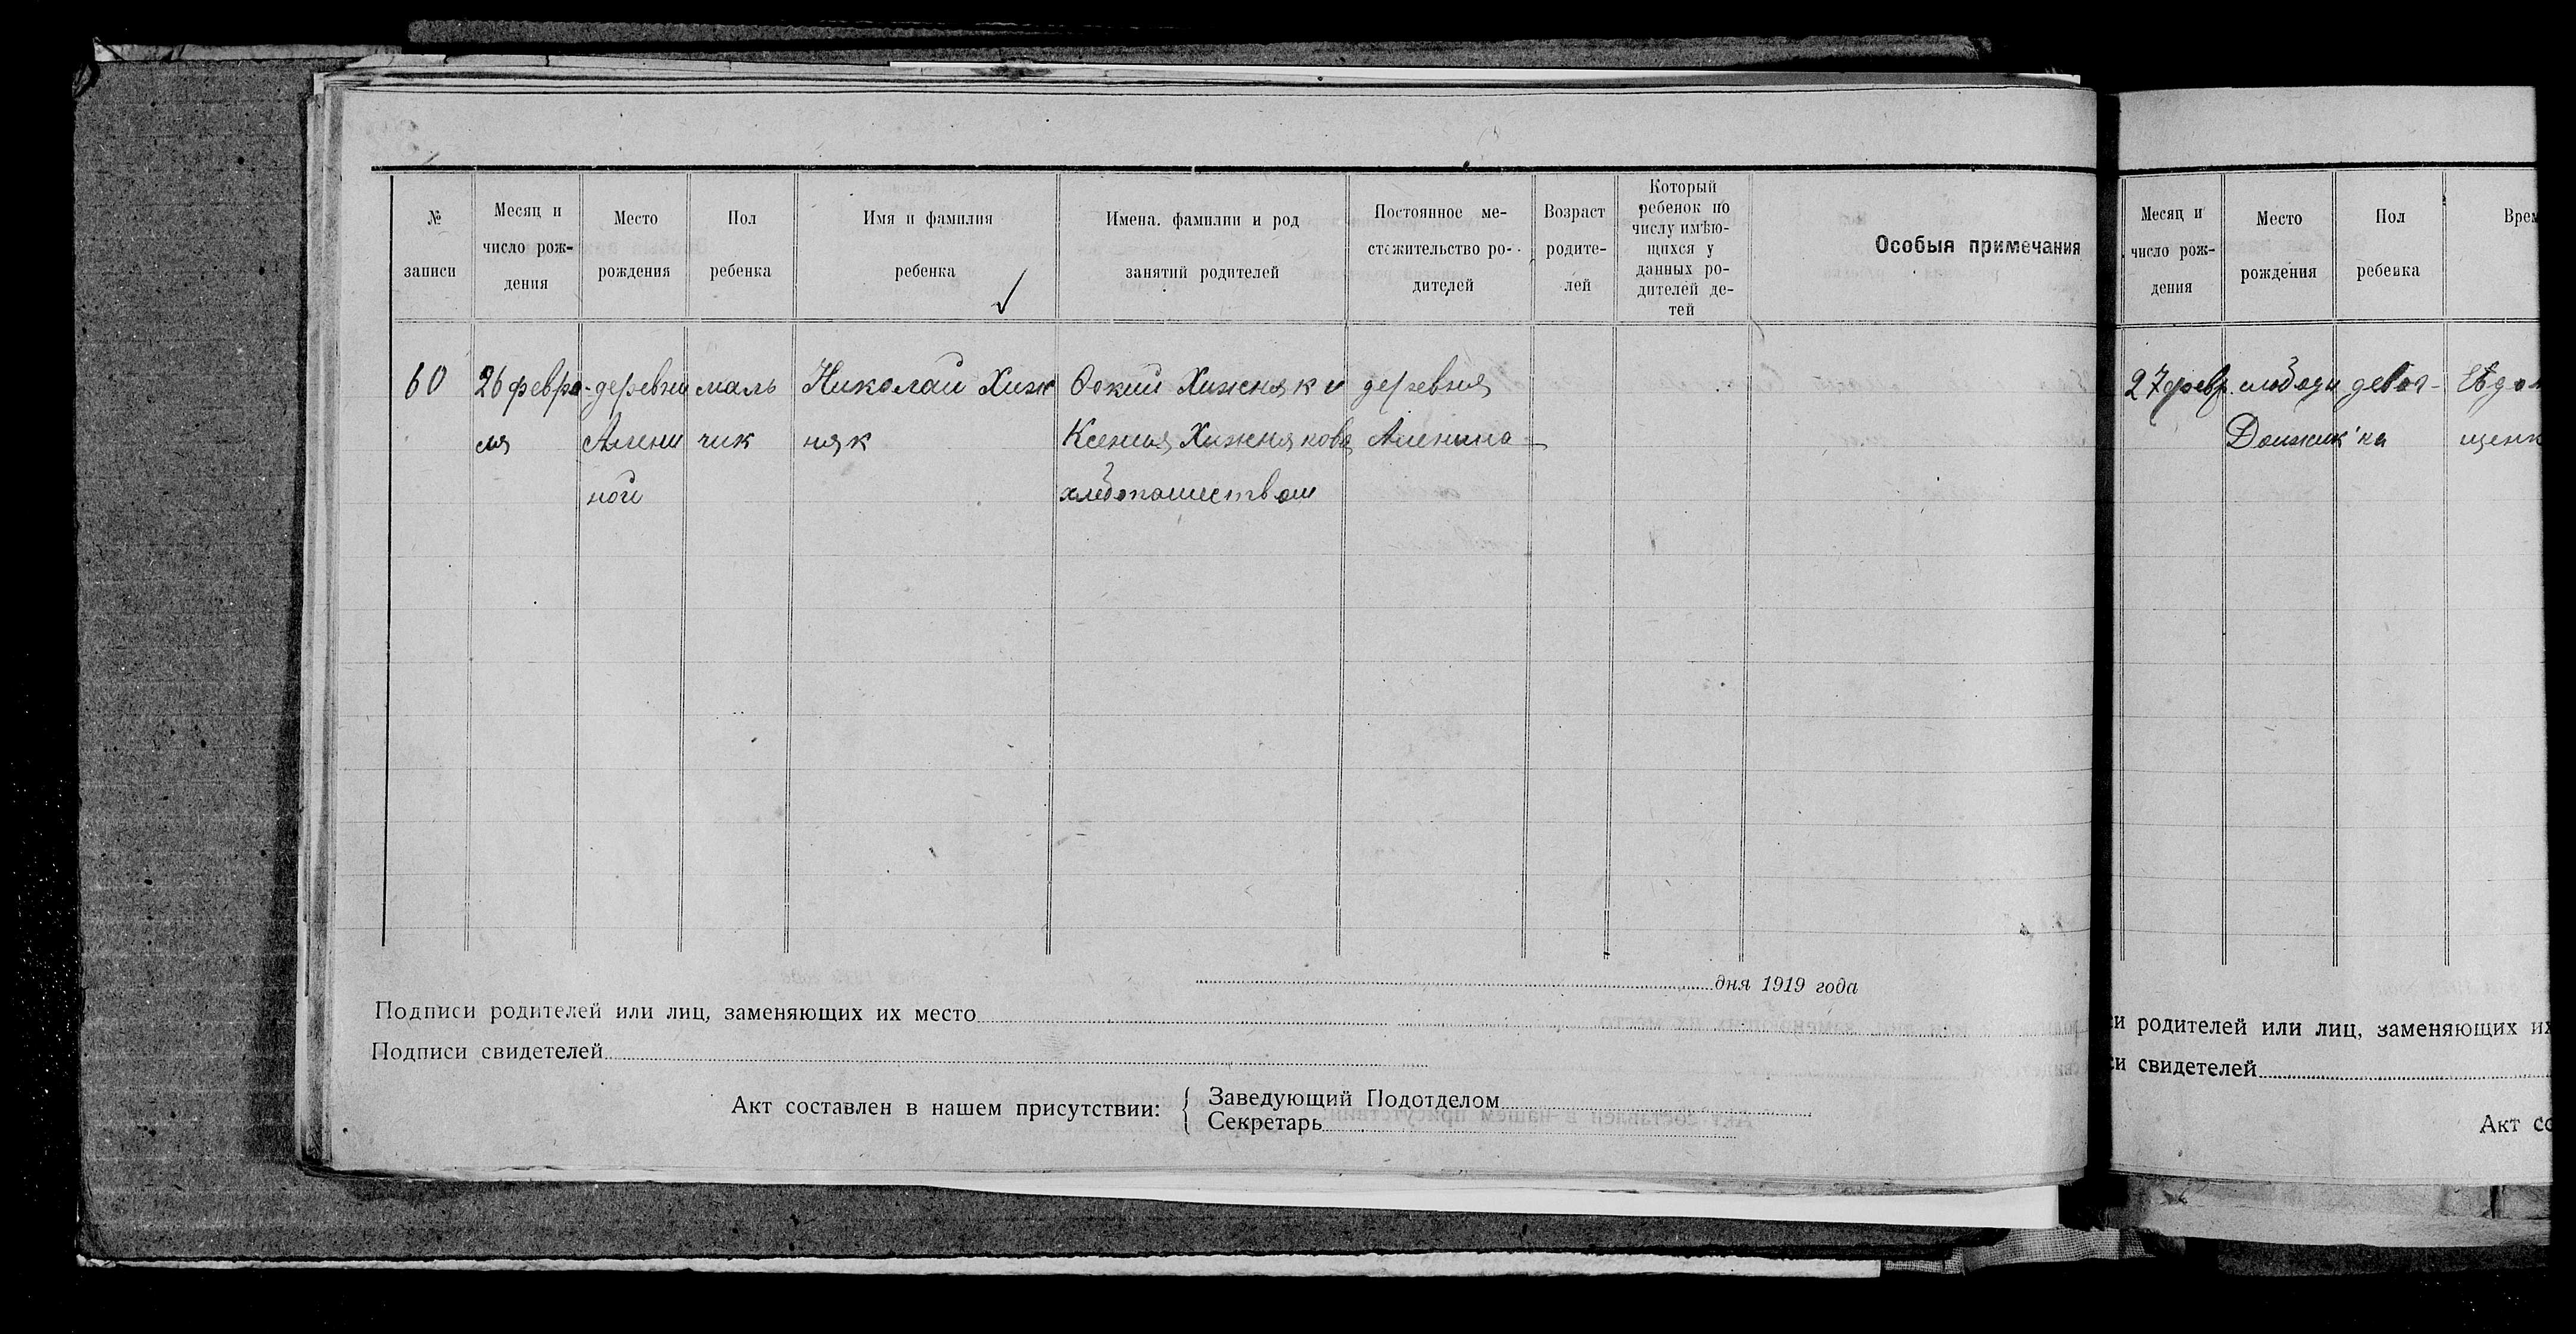 № записи
Месяц и число рождения
Место рождения
Пол ребенка
Имя и фамилия ребенка
Имена. фамилии и род занятий родителей
Постоянное местожительство родителей
Возраст родителей
Который ребенок по числу имѣющихся у данных родителей детей
Особыя примечания
60
26 февраля
деревни Алениной
мальчик
Николай Хижняк
Хижняк и
Ксения Хижнякова
хлебопашеством
деревня
Аленина
дня 1919 года
Подписи родителей или лиц, заменяющих их место
Подписи свидетелей
Акт составлен в нашем присутствии:
Заведующий Подотделом
Секретарь
Месяц и число рождения
Место рождения
Пол ребенка
27 февр.
слободи
девоч-
ка
родителей или лиц, заменяющих их
свидетелей
Акт